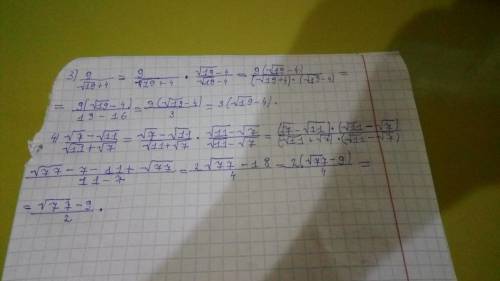 3) 9/(√19+4) = 9/(√19+4) · (√19-4)/(√19-4) = 9(√19-4)/((√19+4)·(√19-4)) =
= 9(√19-4)/(19-16) = 9(√19-4)/3 = 3(√19-4).
4) (√7-√11)/(√11+√7) = (√7-√11)/(√11+√7) · (√11-√7)/(√11-√7) = ((√7-√11)·(√11-√7))/((√11+√7)·(√11-√7))
(√77-7-11+√77)/(11-7) = (2√77-18)/4 = 2(√77-9)/4 =
= (√77-9)/2.